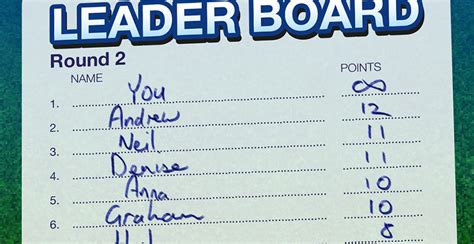 LEADER BOARD
Round 2
NAME POINTS
1. You ∞
2. Andrew 12
3. Neil 11
4. Denise 11
5. Anna 10
6. Graham 10
8